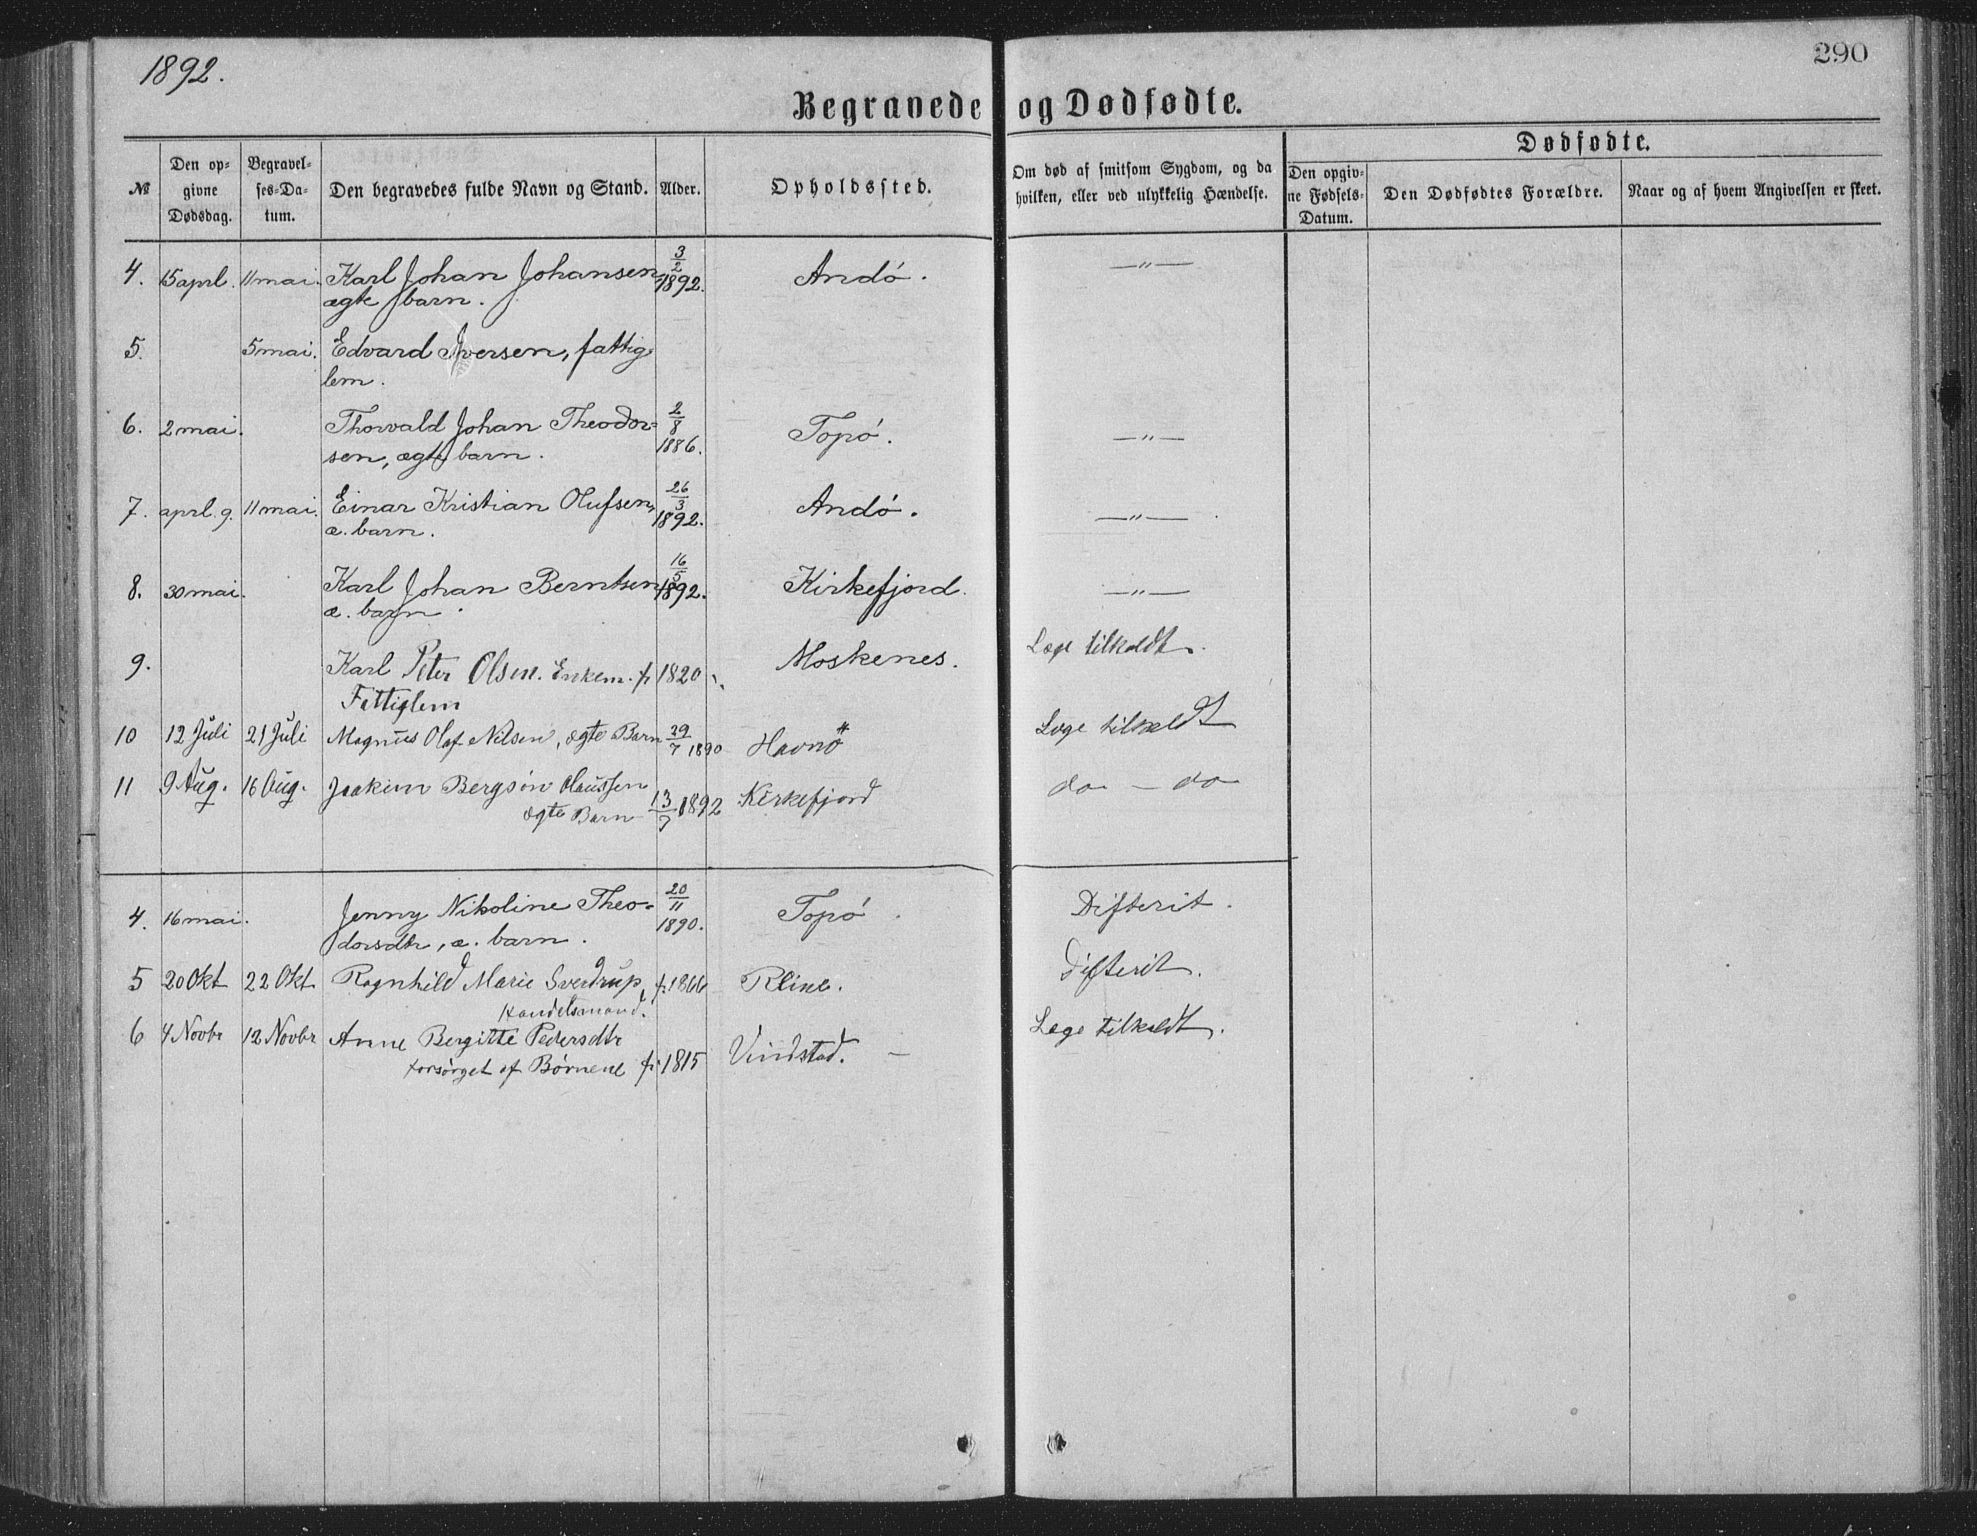 1892.
290
Begravede og Dødfødte.
№
Den op-
givne
Dødsdag.
Begravel-
ses-Da-
tum.
Den begravedes fulde Navn og Stand.
Alder.
Opholdssted.
Om død af smitsom Sygdom, og da
hvilken, eller ved ulykkelig Hændelse.
Dødfødte.
Den opgiv-
ne Fødsels-
Datum.
Den Dødfødtes Forældre.
Naar og af hvem Angivelsen er skeet.
4. 15 aprl. 11 mai. Karl Johan Johansen, 3/2 1892. Andö. —"—
ægte barn.
5. 5 mai. Edvard Iversen, fattig-
lem.
6. 2 mai. Thorvald Johan Theodor- 2/8 1886. Topö. —"—
sen, ægte barn.
7. aprl. 9. 11 mai. Einar Kristian Olufsen, 26/3 1892. Andö. —"—
æ. barn.
8. 30 mai. Karl Johan Berntsen, 16/5 1892. Kirkefjord. —"—
æ. barn.
9. Karl Peter Olsen. Enkem. f. 1820 Moskenes. Læge tilkaldt.
Fattiglem
10 12 Juli 21 Juli Magnus Olaf Nilsen, ægte Barn 29/7 1890 Havnö Læge tilkaldt
11 9 Aug. 16 Aug. Joakim Bergson Olaussen
ægte Barn 13/7 1892 Kirkefjord do — do
4. 16 mai. Jenny Nikoline Theo- 20/11 1890. Topö. Difterit.
dorsdtr, æ. barn.
5 20 Okt 22 Okt Ragnhild Marie Sverdrup, f. 1866 Reine. Difterit.
Handelsmand.
6 4 Novbr 12 Novbr Anne Bergitte Pedersdtr Læge tilkaldt.
forsørget af Børnene f. 1815 Vindstad. —